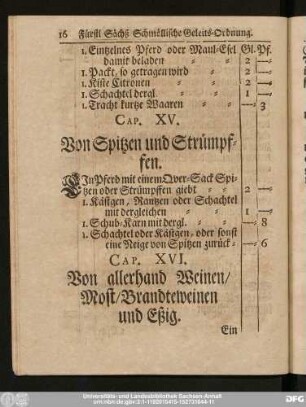 16 Fürstl. Sächß. Schmöllische Geleits-Ordnung.
1. Eintzelnes Pferd oder Maul-Esel Gl. Pf.
damit beladen 2 —
1. Packt, so getragen wird 2 —
1. Kiste Citronen 2 —
1. Schachtel dergl. 1 —
1. Tracht kurtze Waaren — 3
CAP. XV.
Von Spitzen und Strümpf-
fen.
EIn Pferd mit einem Qver-Sack Spi-
tzen oder Strümpffen giebt 2 —
1. Kästgen, Rantzen oder Schachtel
mit dergleichen 1 —
1. Schub-Karn mit dergl. — 8
1. Schachtel oder Kästgen, oder sonst
eine Neige von Spitzen zurück- — 6
CAP. XVI.
Von allerhand Weinen/
Most/Brandteweinen
und Eßig.
Ein
Universitäts- und Landesbibliothek Sachsen-Anhalt
urn:nbn:de:gbv:3:1-1192015415-152731644-11
DFG